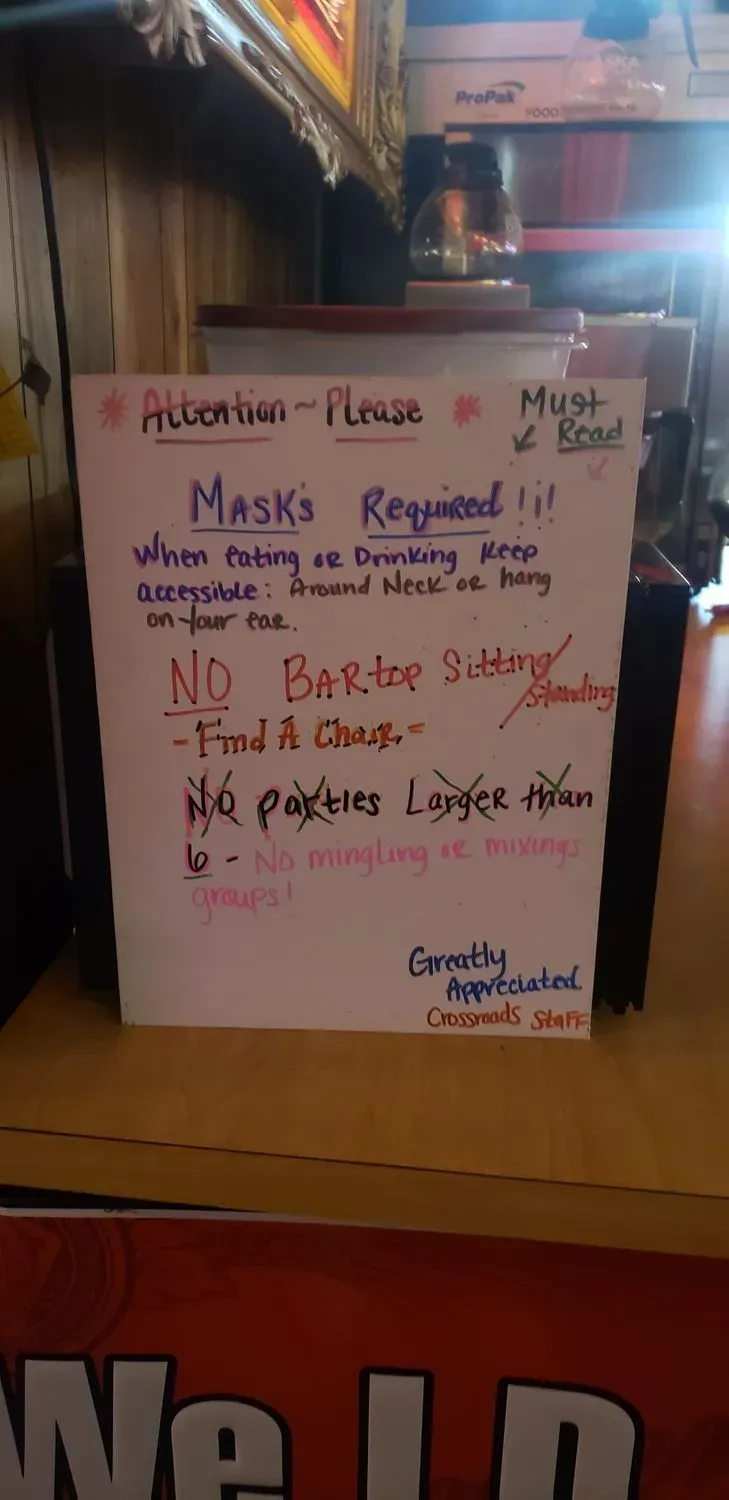 ProPak
FOOD
* Attention ~ Please *
Must
↙ Read
Mask's Required !i!
When Eating or Drinking Keep
accessible: Around Neck or hang
on your ear.
NO BARtop Sitting/
Standing
- Find A Chair -
NO parties Larger than
6 - No mingling or mixings
groups!
Greatly
Appreciated
Crossroads Staff
We I.D